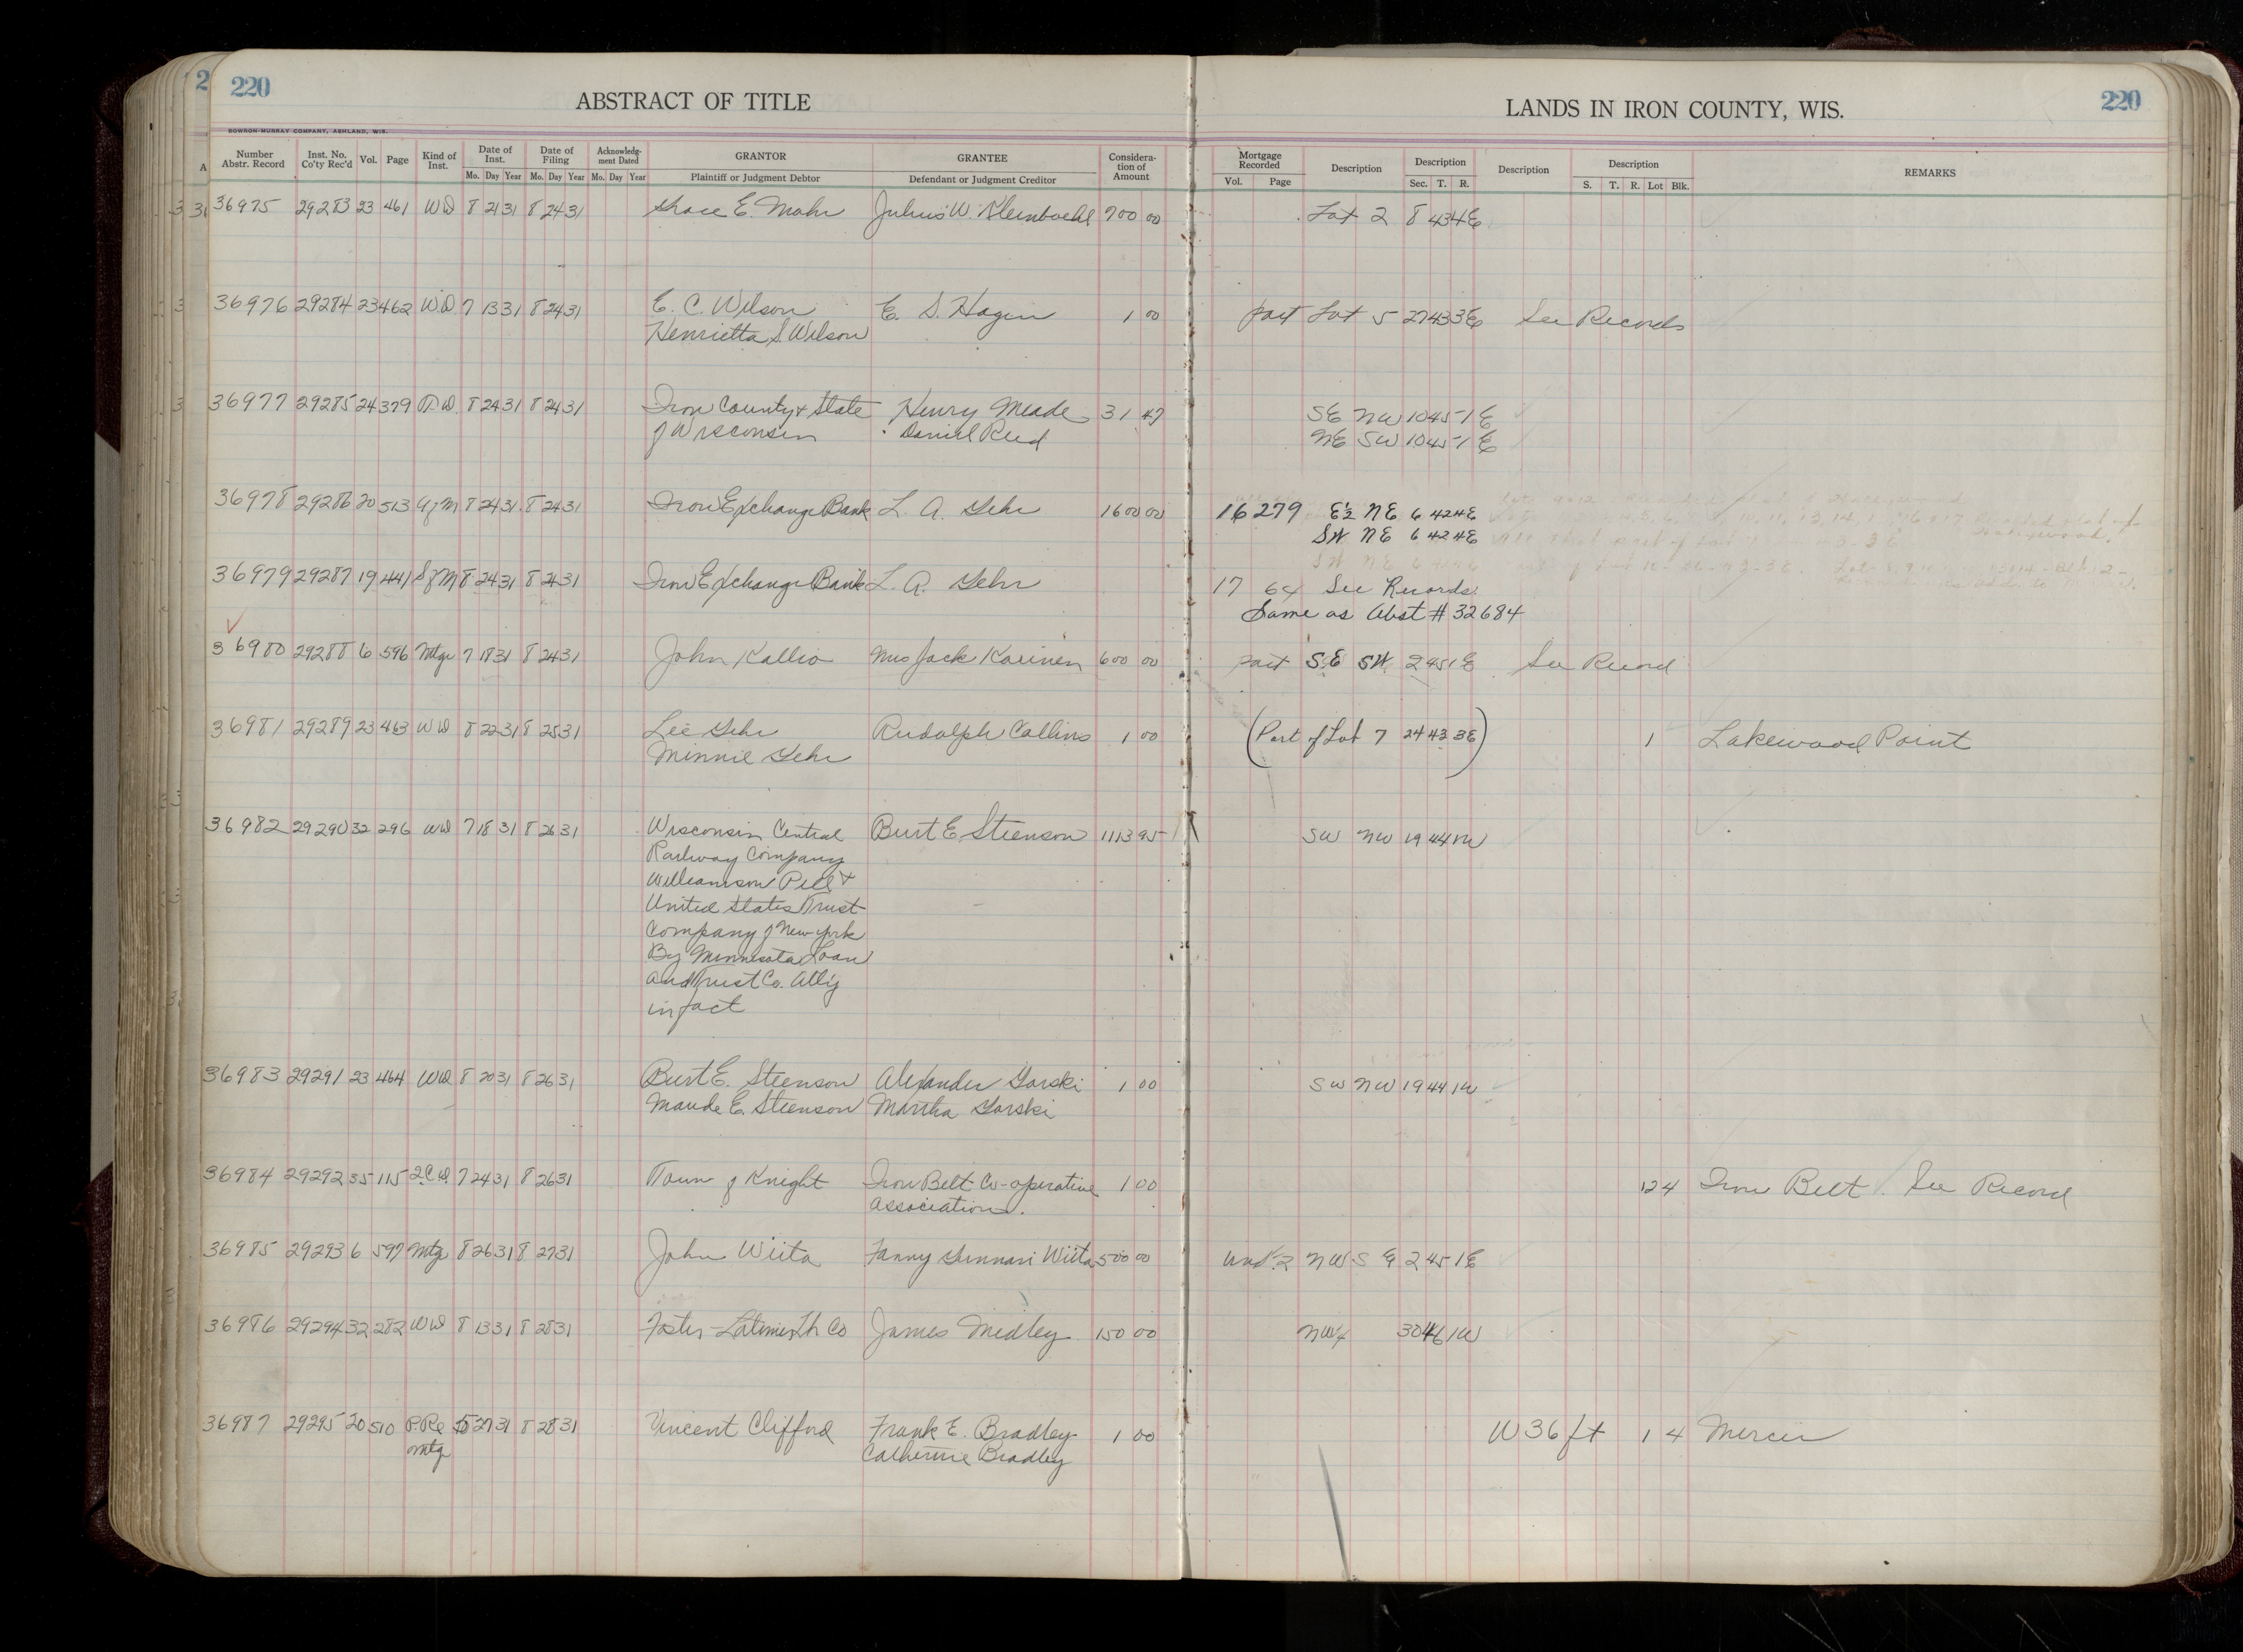 2 220
ABSTRACT OF TITLE
LANDS IN IRON COUNTY, WIS.
220
BOWRON-MURRAY COMPANY, ASHLAND, WIS.
A Number Abstr. Record Inst. No. Co'ty Rec'd Vol. Page Kind of Inst. Date of Inst. Mo. Day Year Date of Filing Mo. Day Year Acknowledg-ment Dated Mo. Day Year GRANTOR Plaintiff or Judgment Debtor GRANTEE Defendant or Judgment Creditor Considera-tion of Amount Mortgage Recorded Vol. Page Description Description Sec. T. R. Description Description S. T. R. Lot Blk. REMARKS
36975 29283 23 461 WD 8 21 31 8 24 31 Grace E. Mohr Julius W. Kleinboehl 700 00 Lot 2 8 43 4E
36976 29284 23 462 WD 7 13 31 8 24 31 E. C. Wilson E. S. Hagen 1 00 part Lot 5 27 43 3E See Records
Henrietta S. Wilson
36977 29285 24 379 T.D. 8 24 31 8 24 31 Iron County & State Henry Meade 31 47 SE NW 10 45 1 E
of Wisconsin Daniel Reed NE SW 10 45 1 E
36978 29286 20 513 A of M 8 24 31 8 24 31 Iron Exchange Bank L. A. Gehr 1600 00 16 279 E½ NE 6 42 4E
SW NE 6 42 4E
36979 29287 19 441 S of M 8 24 31 8 24 31 Iron Exchange Bank L. A. Gehr 17 64 See Records
Same as Abst # 32684
36980 29288 6 596 Mtge 7 18 31 8 24 31 John Kallio Mrs Jack Karinen 600 00 part SE SW 2 45 1E See Record
36981 29289 23 463 WD 8 22 31 8 25 31 Lee Gehr Rudolph Collins 1 00 (Part of Lot 7 24 43 3E) 1 Lakewood Point
Minnie Gehr
36982 29290 32 296 WD 7 18 31 8 26 31 Wisconsin Central Burt E. Steenson 1113 95 SW NW 19 44 1W
Railway Company
Williamson Pell &
United States Trust
Company of New York
By Minnesota Loan
and Trust Co. Att'y
in fact
36983 29291 23 464 WD 8 20 31 8 26 31 Burt E. Steenson Alexander Gorski 1 00 SW NW 19 44 1W
Maude E. Steenson Martha Gorski
36984 29292 35 115 2.C.D. 7 24 31 8 26 31 Town of Knight Iron Belt Co-operative 1 00 12 4 Iron Belt. See Record
Association.
36985 29293 6 597 Mtg 8 26 31 8 27 31 John Wiita Fanny Wiita 500 00 und ½ NW SE 2 45 1E
36986 29294 32 282 WD 8 13 31 8 28 31 Foster-Latimer Lbr Co James Medley 150 00 NW¼ 30 46 1W
36987 29295 20 510 P.Re 5 27 31 8 28 31 Vincent Clifford Frank E. Bradley 1 00 W 36 ft 1 4 Mercer
Mtg Catherine Bradley